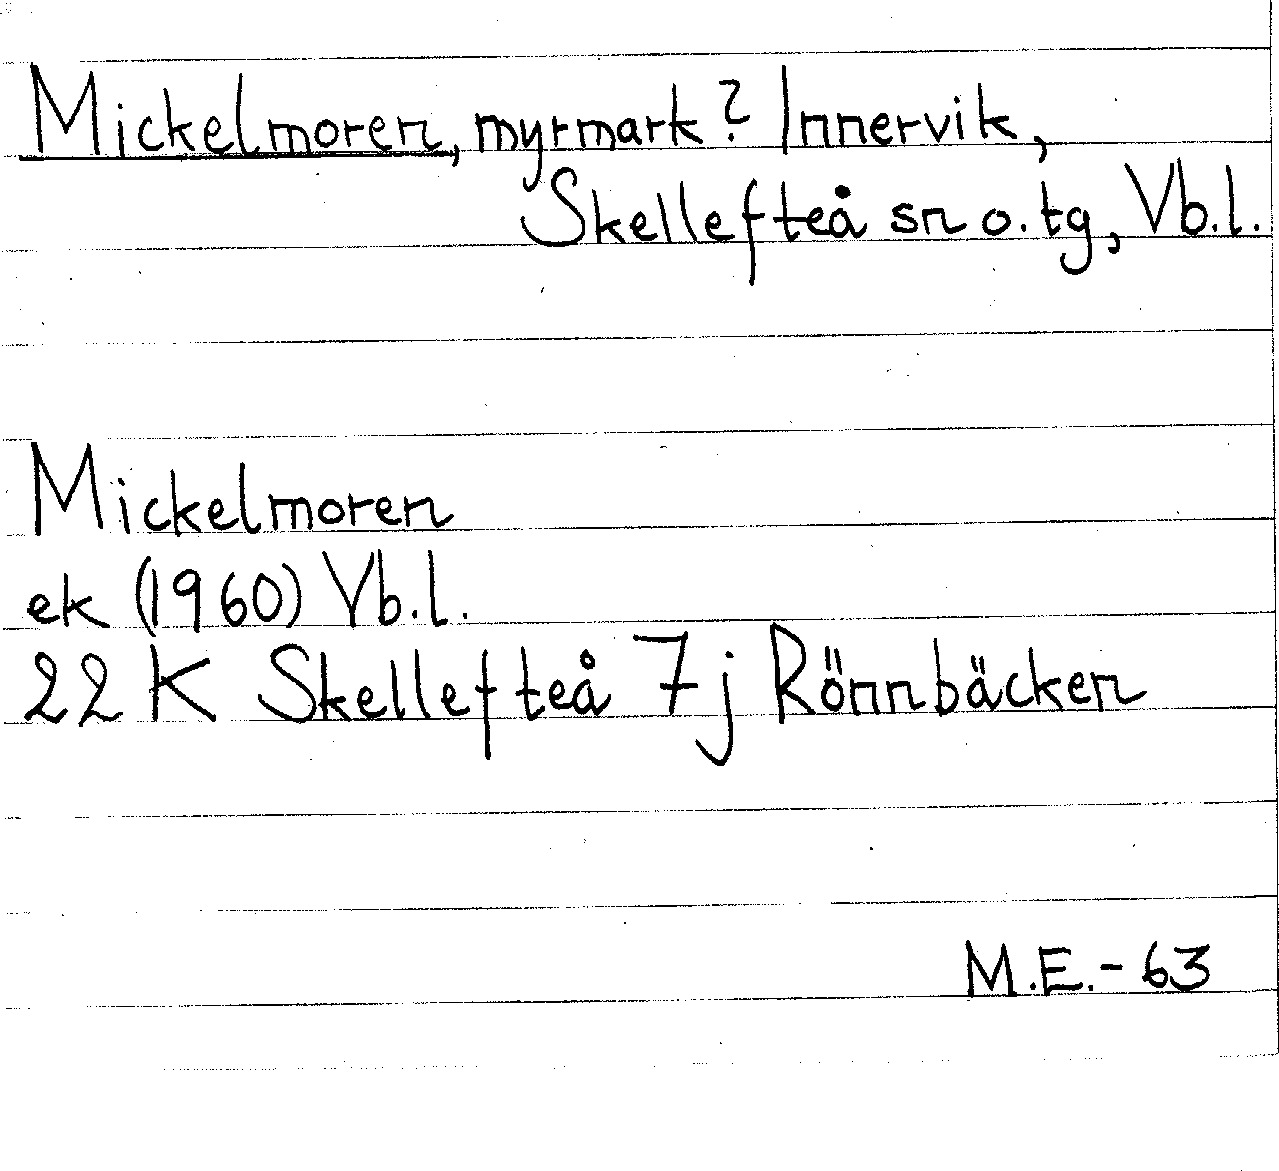 Mickelmoren, myrmark? Innervik,
Skellefteå sn o. tg, Vb.l.
Mickelmoren
ek (1960) Vb.l.
22 K Skellefteå 7j Rönnbäcken
M.E.-63